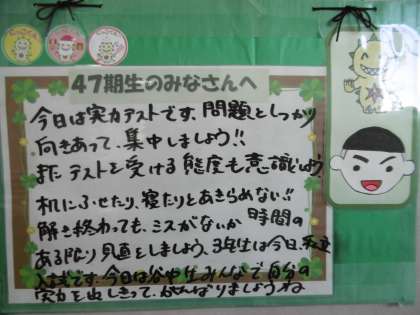 47期生のみなさんへ
今日は実力テストです。問題としっかり
向きあって、集中しましょう!!
またテストを受ける態度も意識しよう。
机にふせたり、寝たりとあきらめない!!
解き終わっても、ミスがないか時間の
あるかぎり見直をしましょう。3年生は今日、私立
入試です。今日は谷中生みんなで自分の
実力を出しきって、がんばりましょうね